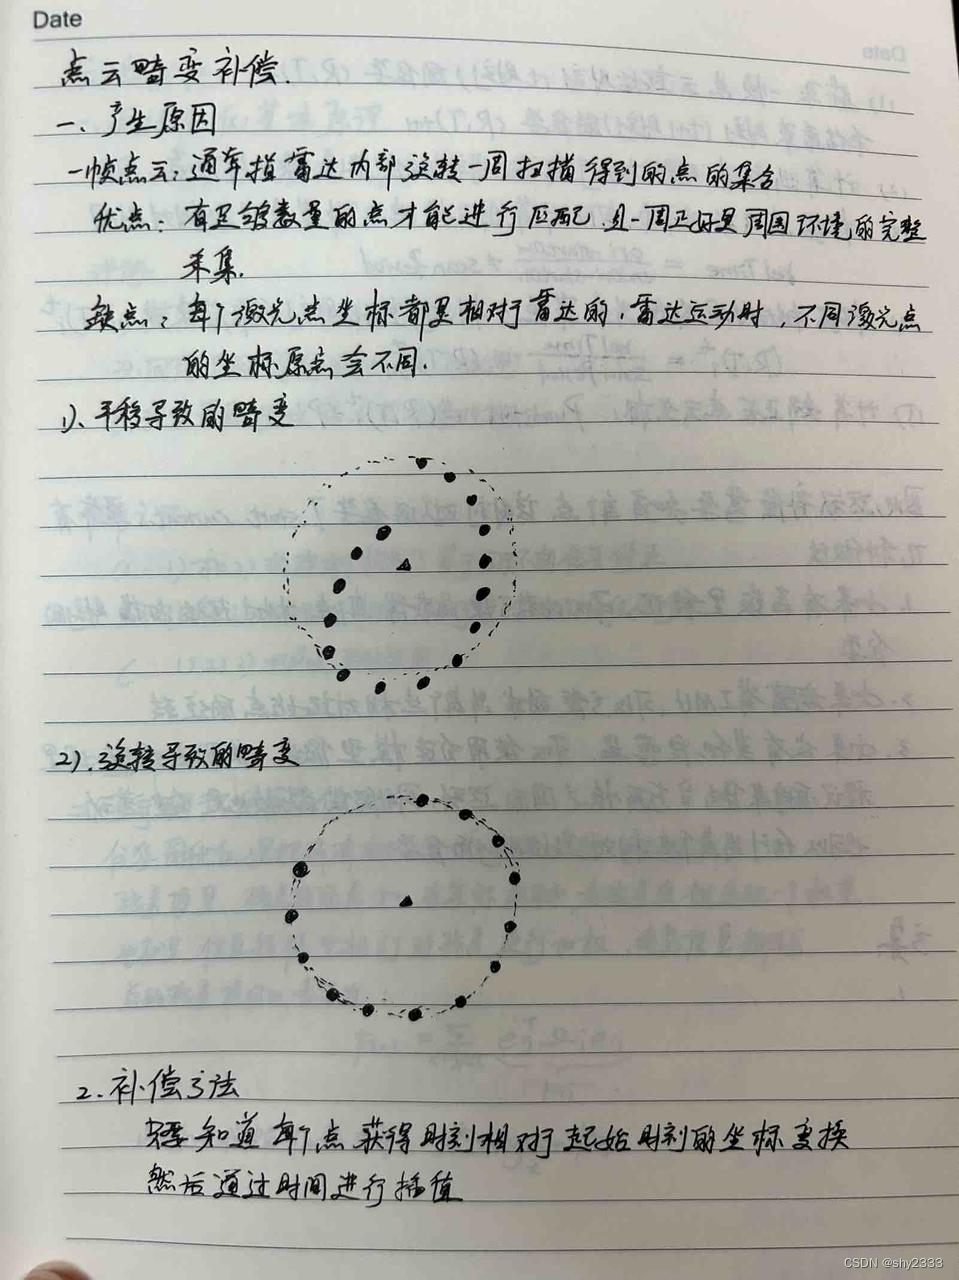 Date
点云畸变补偿.
一、产生原因
一帧点云：通常指雷达内部旋转一周扫描得到的点的集合
优点：有足够数量的点才能进行匹配，且一周正好是周围环境的完整
采集.
缺点：每个激光点坐标都是相对于雷达的，雷达运动时，不同激光点
的坐标原点会不同.
1)、平移导致的畸变
2)、旋转导致的畸变
2.补偿方法
需要知道每个点获得时刻相对于起始时刻的坐标变换
然后通过时间进行插值
CSDN @shy2333